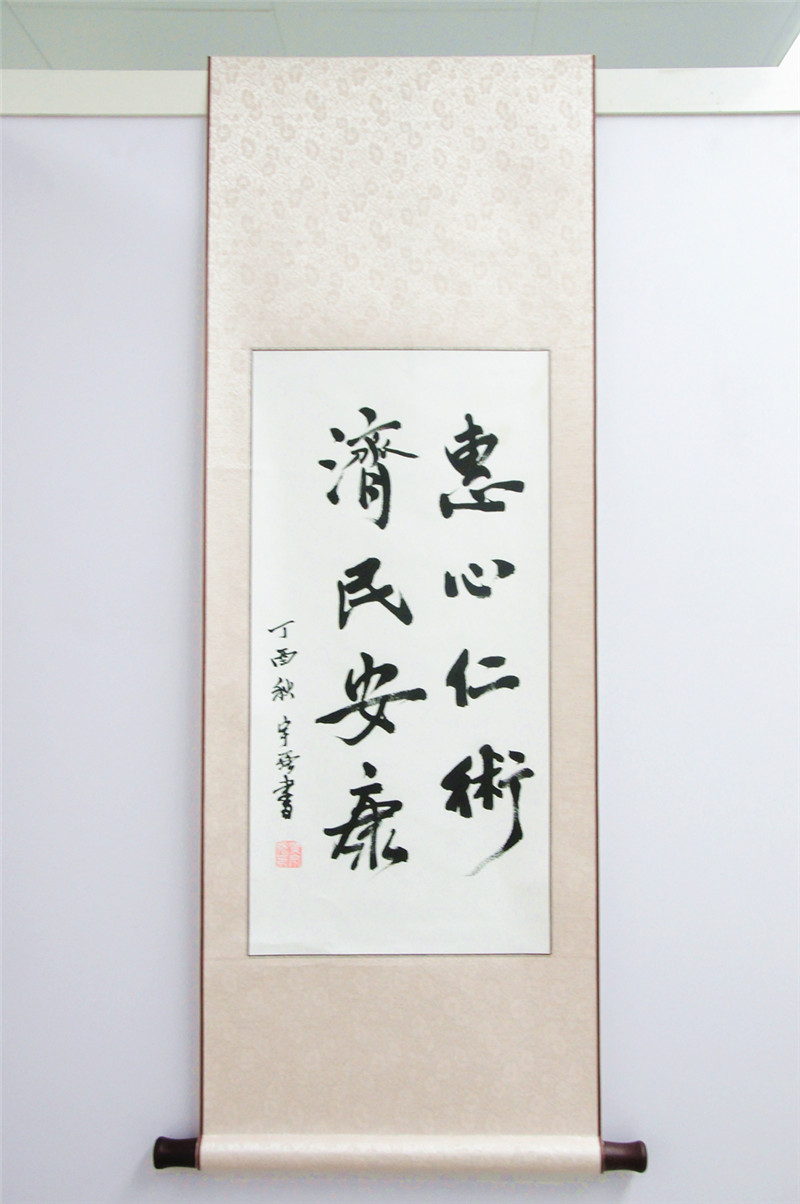 惠心仁術
濟民安康
丁酉秋宇書